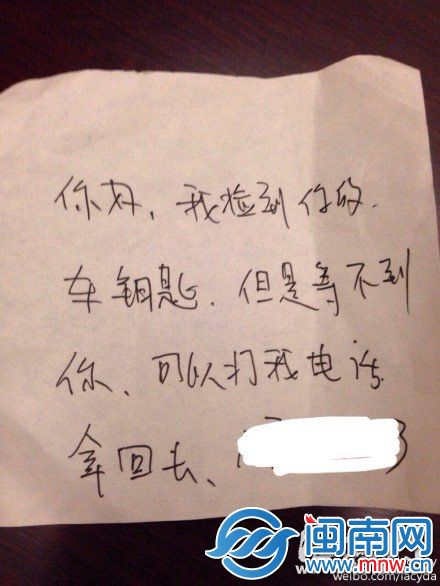 你好、我捡到你的.
车钥匙.但是等不到
你、可以打我电话
拿回去、
闽南网
www.mnw.cn
weibo.com/lacyda